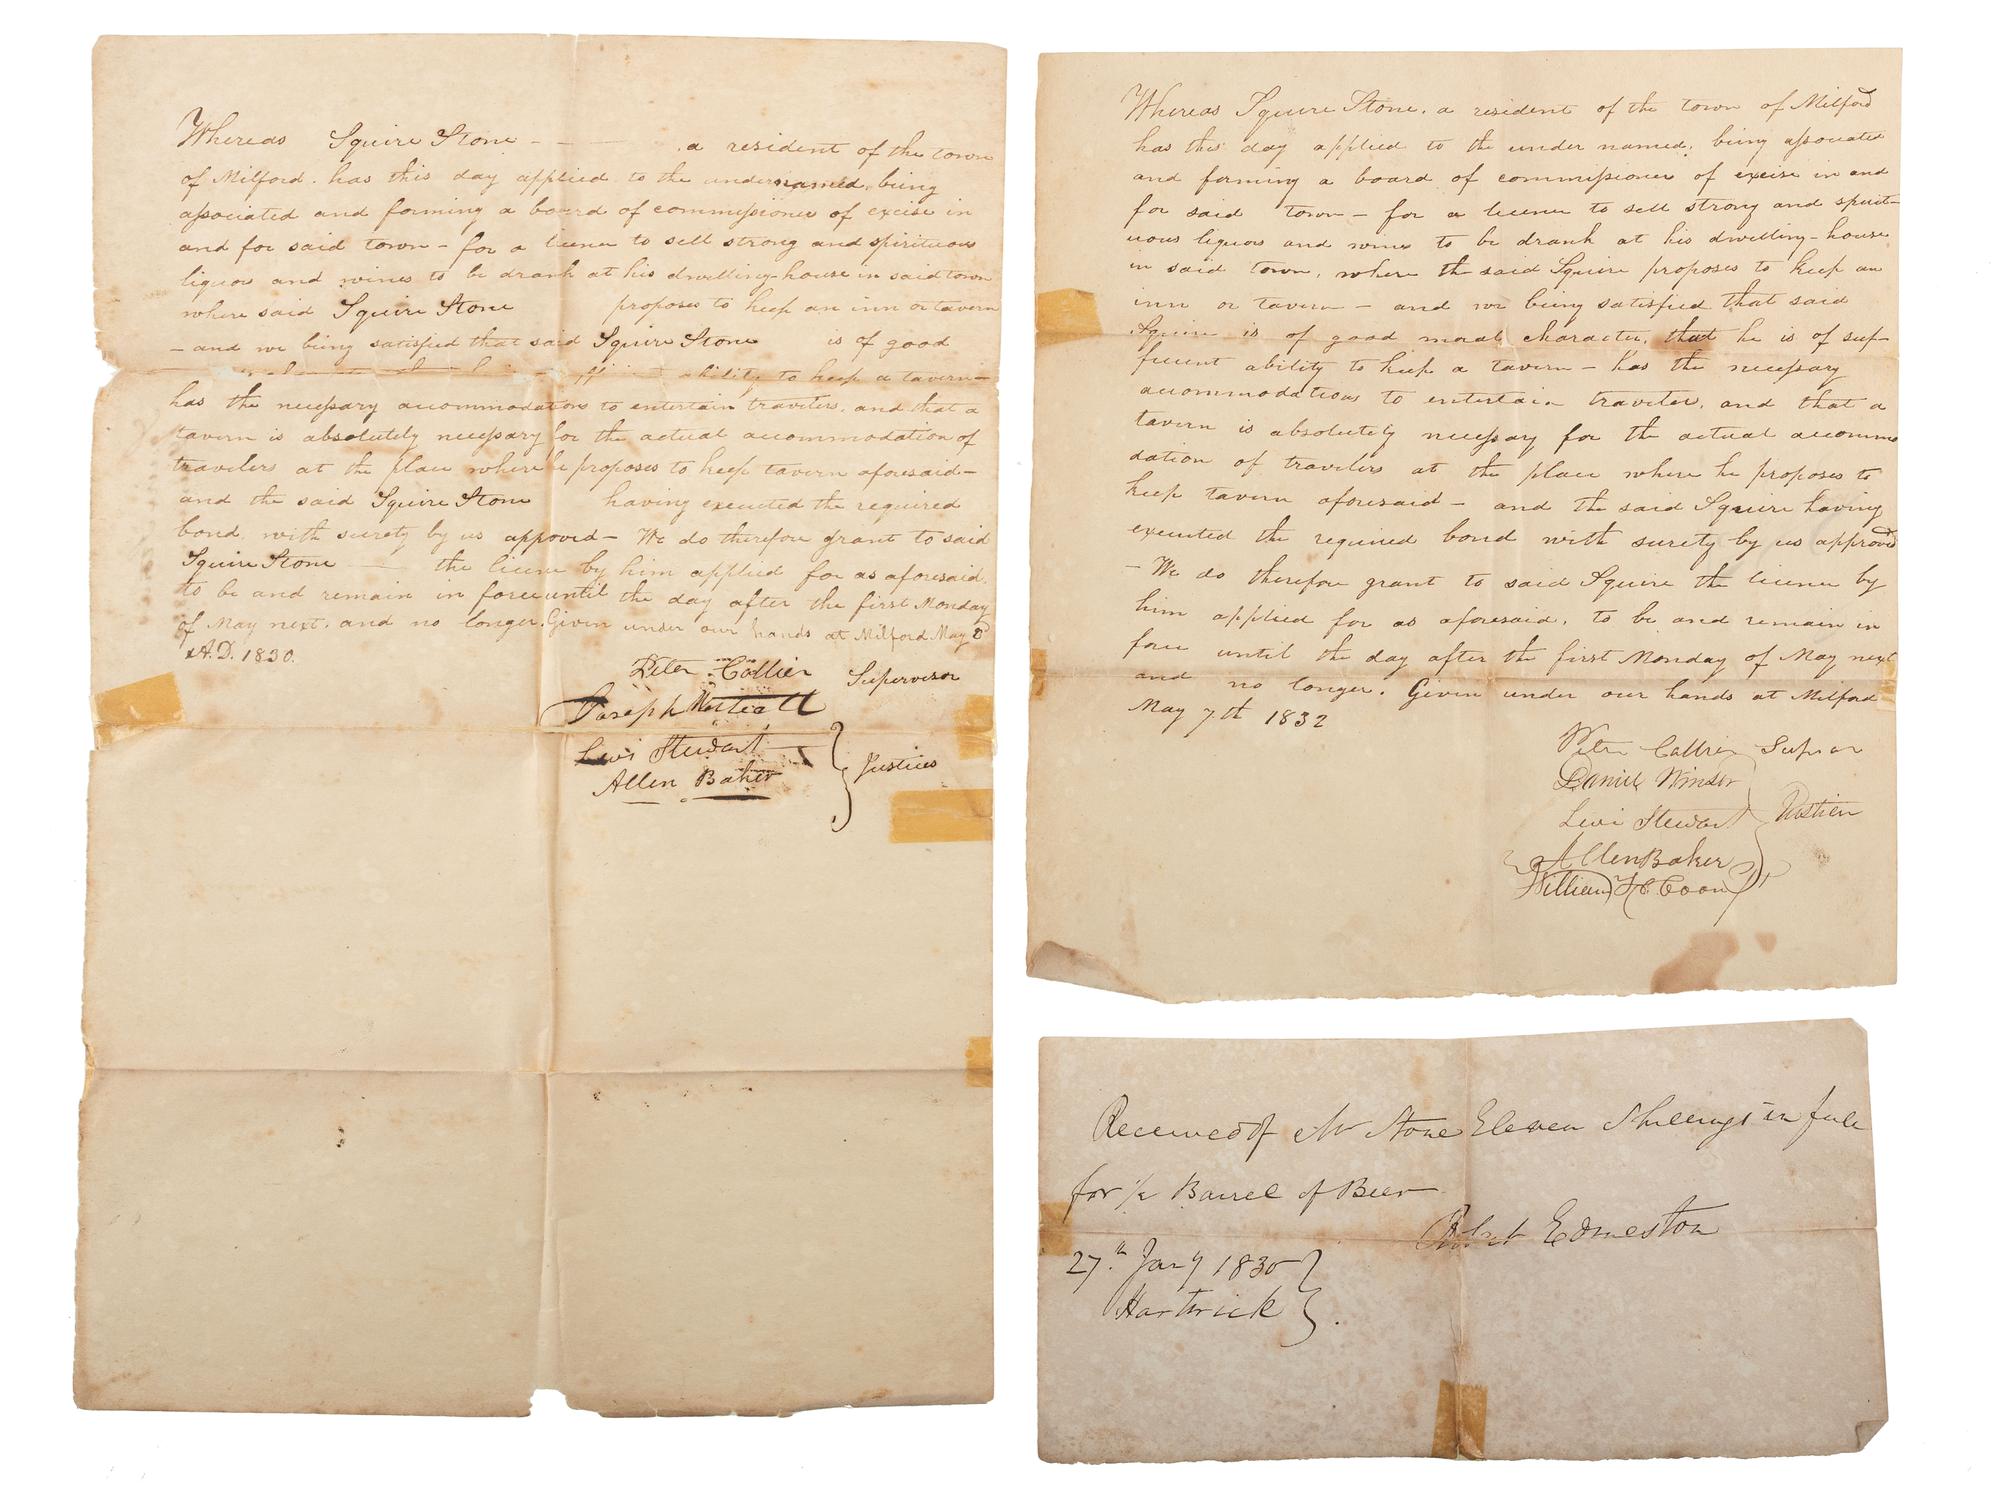 Whereas Squire Stone - - — a resident of the town
of Milford. has this day applied to the undernamed, being
associated and forming a board of commissioners of excise in
and for said town – for a license to sell strong and spirituous
liquors and wines to be drank at his dwelling-house in said town
where said Squire Stone proposes to keep an inn or tavern
– and we being satisfied that said Squire Stone is of good
ability to keep a tavern –
has the necessary accommodations to entertain travelers, and that a
tavern is absolutely necessary for the actual accommodation of
travelers at the place where he proposes to keep tavern aforesaid –
and the said Squire Stone having executed the required
bond, with surety by us appoved – We do therefore grant to said
Squire Stone — the license by him applied for as aforesaid.
to be and remain in force until the day after the first Monday
of May next, and no longer. Given under our hands at Milford May
A.D. 1830.
Peter Collier Supervisor
Joseph
Levi Stewart
Allen Baker
Justices
Whereas Squire Stone, a resident of the town of Milford
has this day applied to the under named, being associated
and forming a board of commissioners of excise in and
for said town – for a license to sell strong and spirit-
uous liquors and wines to be drank at his dwelling-house
in said town, where the said Squire proposes to keep an
inn or tavern – and we being satisfied that said
Squire is of good moral character, that he is of suf-
ficient ability to keep a tavern – has the necessary
accommodations to entertain travelers, and that a
tavern is absolutely necessary for the actual accommo
dation of travelers at the place where he proposes to
keep tavern aforesaid – and the said Squire having
executed the required bond with surety by us approved
– We do therefore grant to said Squire the license by
him applied for as aforesaid, to be and remain in
force until the day after the first Monday of May next
and no longer. Given under our hands at Milford
May 7th 1832
Peter Collier
Daniel Winsor
Levi Stewart
Justices
Allen Baker
William Coon
Received of Mr Stone Eleven Shillings in full
for 1/2 Barrel of Beer
Robert Edmeston
27th Jany 1830
Hartwick